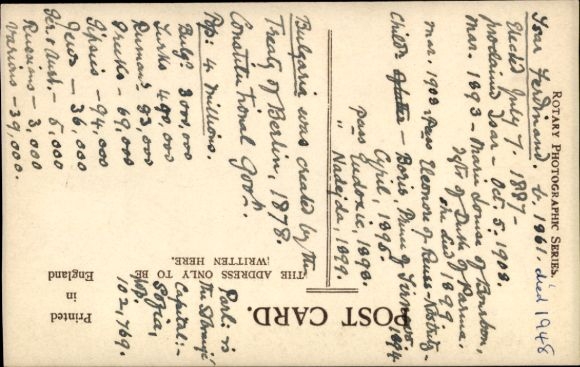 ROTARY PHOTOGRAPHIC SERIES.
Tsar Ferdinand. b. 1861. died 1948
Elected July 7. 1887 -
proclaimed Tsar - Oct. 5. 1908.
Mar. 1893 - Marie Louise of Bourbon,
dgtr of Duke of Parma.
she died 1899
Mar. 1908 Pss Eleonore of Reuss-Köstritz -
Childn - Boris, Prince of Tirnovo, 1894
April, 1895.
pss Eudoxie, 1898.
" Nadejda, 1899.
Bulgaria was created by the
Treaty of Berlin, 1878.
Constitutional Govt.
Pop: 4 millions.
Bulg: 300,000
Turks 490,000
Ruman: 83,000
Greeks - 69,000
Gipsies - 94,000
Jews - 36,000
Ger. & Aust. - 5,000
Russians - 3,000
Various - 39,000.
POST CARD.
THE ADDRESS ONLY TO BE
WRITTEN HERE.
Printed
in
England
Parl: is
the Sobranje
Capital: -
Sofia,
Pop.
102,769.